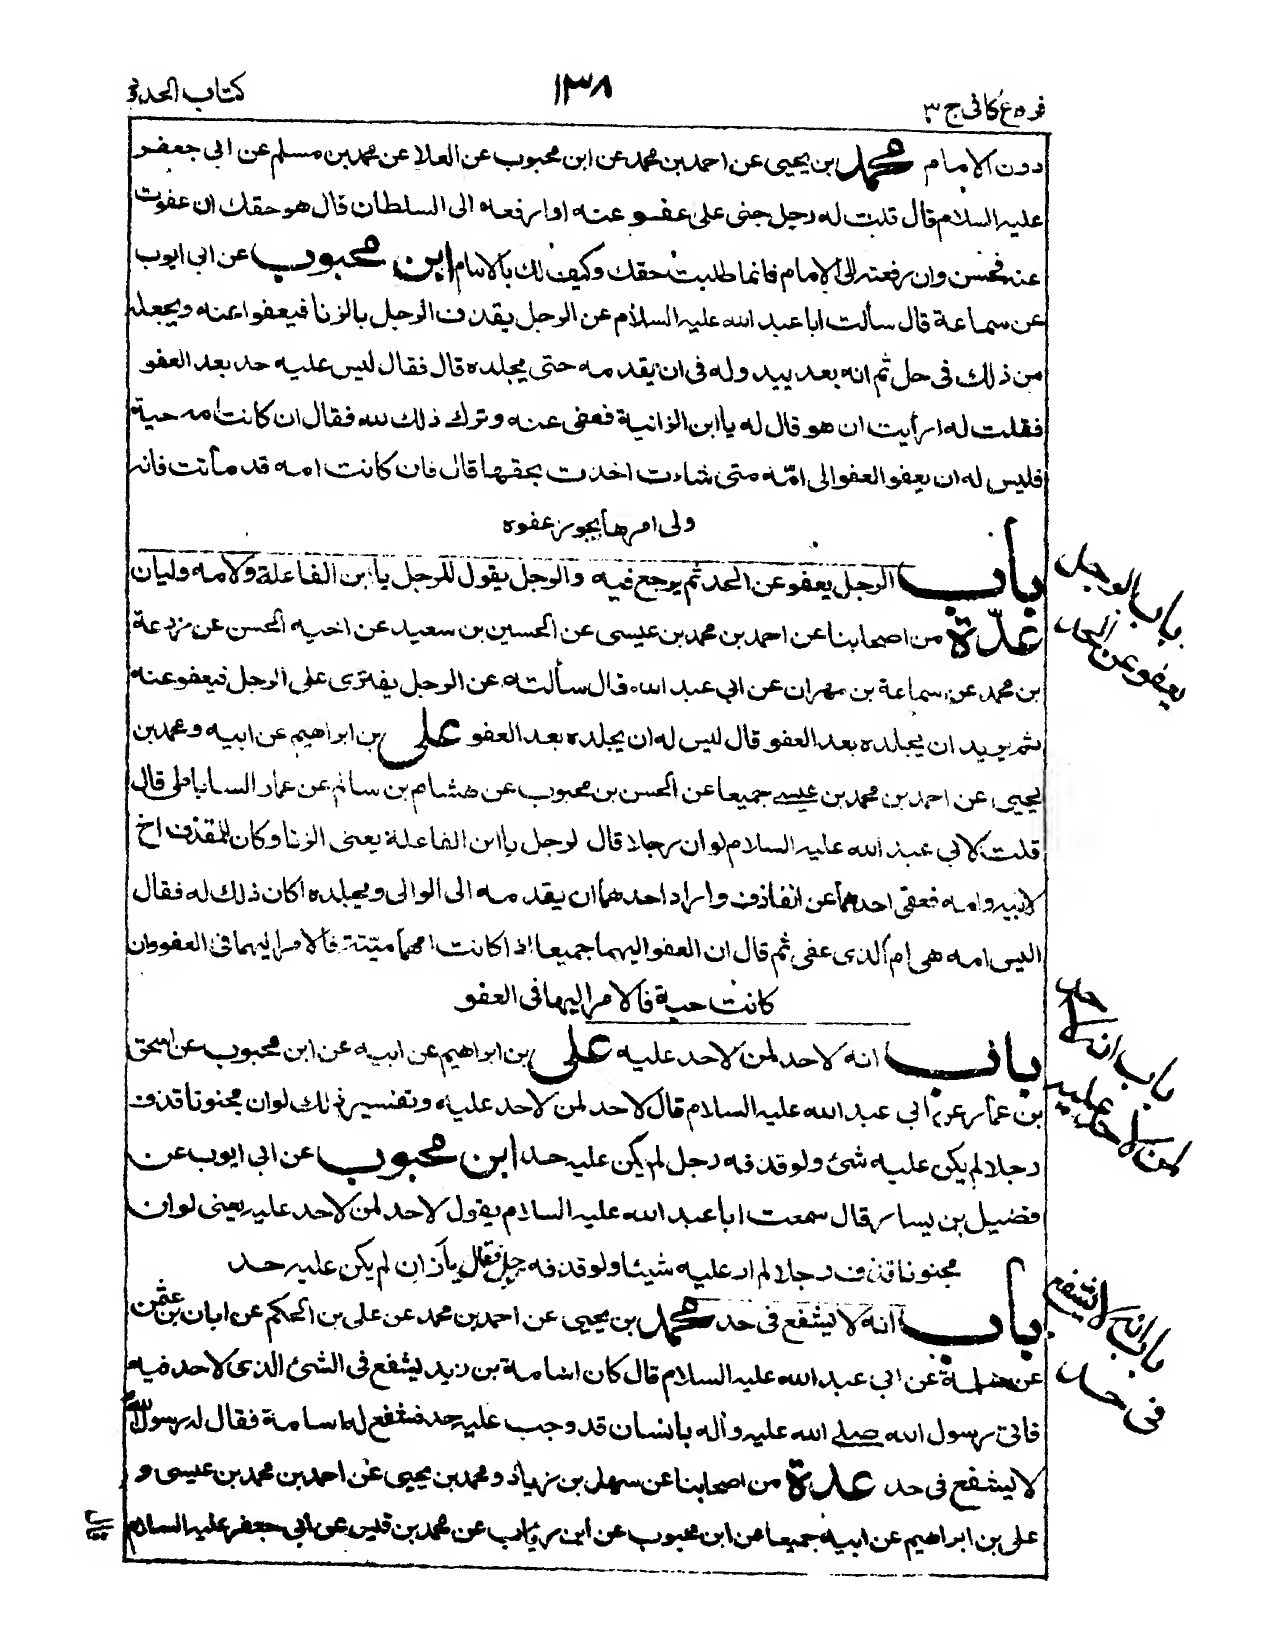 فروع كافى ج ٣
١٣٨
كتاب الحدود
دون الامام محمد بن يحيى عن احمد بن محمد عن ابن محبوب عن العلا عن محمد بن مسلم عن ابى جعفر
عليه السلام قال قلت له رجل جنى على عفو عنه او ارفعه الى السلطان قال هو حقك ان عفوت
عنه فحسن وان رفعته الى الامام فانما طلبت حقك وكيف لك بالامام ابن محبوب عن ابى ايوب
عن سماعة قال سألت ابا عبد الله عليه السلام عن الرجل يقذف الرجل بالزنا فيعفوا عنه ويجعله
من ذلك فى حل ثم انه بعد يبد وله فى ان يقدمه حتى يجلده قال فقال ليس عليه حد بعد العفو
فقلت له ارأيت ان هو قال له يا ابن الزانية فعفى عنه وترك ذلك لله فقال ان كانت امه حية
فليس له ان يعفو العفو الى امّه متى شاءت اخذت بحقها قال فان كانت امه قد ماتت فانه
ولى امرها يجوز عفوه
باب الرجل يعفو عن الحد ثم يرجع فيه والرجل يقول للرجل يا ابن الفاعلة ولامه وليان
عدّة من اصحابنا عن احمد بن محمد بن عيسى عن الحسين بن سعيد عن اخيه الحسن عن زرعة
بن محمد عن سماعة بن مهران عن ابى عبد الله قال سألته عن الرجل يفترى على الرجل فيعفو عنه
ثم يريد ان يجلده بعد العفو قال ليس له ان يجلده بعد العفو على بن ابراهيم عن ابيه ومحمد بن
يحيى عن احمد بن محمد بن عيسى جميعا عن الحسن بن محبوب عن هشام بن سالم عن عمار الساباطى قال
قلت لابى عبد الله عليه السلام لو ان رجلا قال لرجل يا ابن الفاعلة يعنى الزنا وكان للمقذوف اخ
لابيه وامه فعفى احدهما عن القاذف واراد احدهما ان يقدمه الى الوالى ويجلده اكان ذلك له فقال
اليس امه هى ام الذى عفى ثم قال ان العفو اليهما جميعا اذا كانت امهما ميّتة فالامر اليهما فى العفو وان
كانت حية فالامر اليها فى العفو
باب انه لا حد لمن لا حد عليه على بن ابراهيم عن ابيه عن ابن محبوب عن اسحق
بن عمار عن ابى عبد الله عليه السلام قال لا حد لمن لا حد عليه وتفسير ذلك لو ان مجنونا قذف
رجلا لم يكن عليه شئ ولو قذفه رجل لم يكن عليه حد ابن محبوب عن ابى ايوب عن
فضيل بن يسار قال سمعت ابا عبد الله عليه السلام يقول لا حد لمن لا حد عليه يعنى لو ان
مجنونا قذف رجلا لم ار عليه شيئا ولو قذفه رجل فقال يا زان لم يكن عليه حد
باب انه لا يشفع فى حد محمد بن يحيى عن احمد بن محمد عن على بن الحكم عن ابان بن عثمن
عن سلمة عن ابى عبد الله عليه السلام قال كان اسامة بن زيد ليشفع فى الشئ الذى لا حد فيه
فاتى رسول الله صلى الله عليه وآله بانسان قد وجب عليه حد فشفع له اسامة فقال له رسول الله
لا يشفع فى حد عدة من اصحابنا عن سهل بن زياد ومحمد بن يحيى عن احمد بن محمد بن عيسى و
على بن ابراهيم عن ابيه جميعا عن ابن محبوب عن ابن رياب عن محمد بن قيس عن ابى جعفر عليه السلام
باب الرجل
يعفو عن الحد
باب انه لا حد
لمن لا حد عليه
باب انه لا يشفع
فى حد